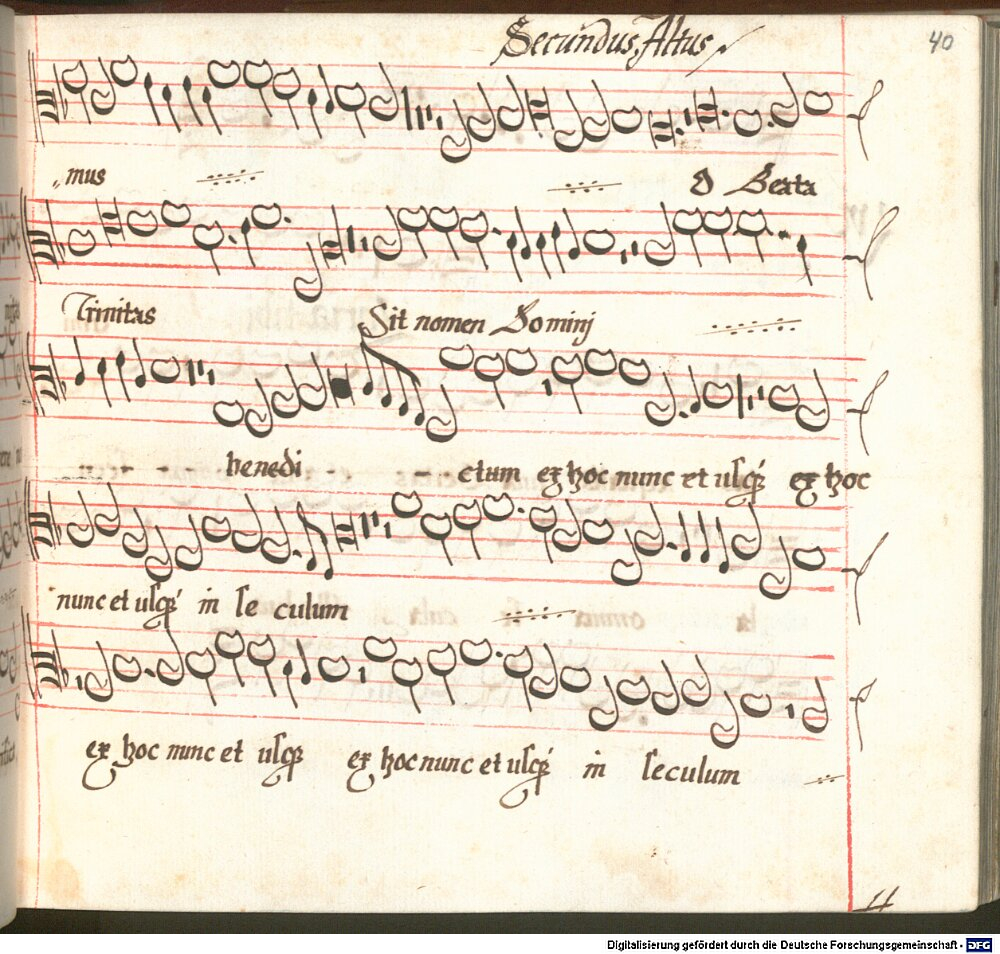 Secundus Altus
40
mus O Beata
Trinitas Sit nomen Dominj
benedi - ctum ex hoc nunc et usq́ꝫ ex hoc
nunc et usq́ꝫ in se culum
ex hoc nunc et usqꝫ ex hoc nunc et usq́ꝫ in seculum
Digitalisierung gefördert durch die Deutsche Forschungsgemeinschaft - DFG